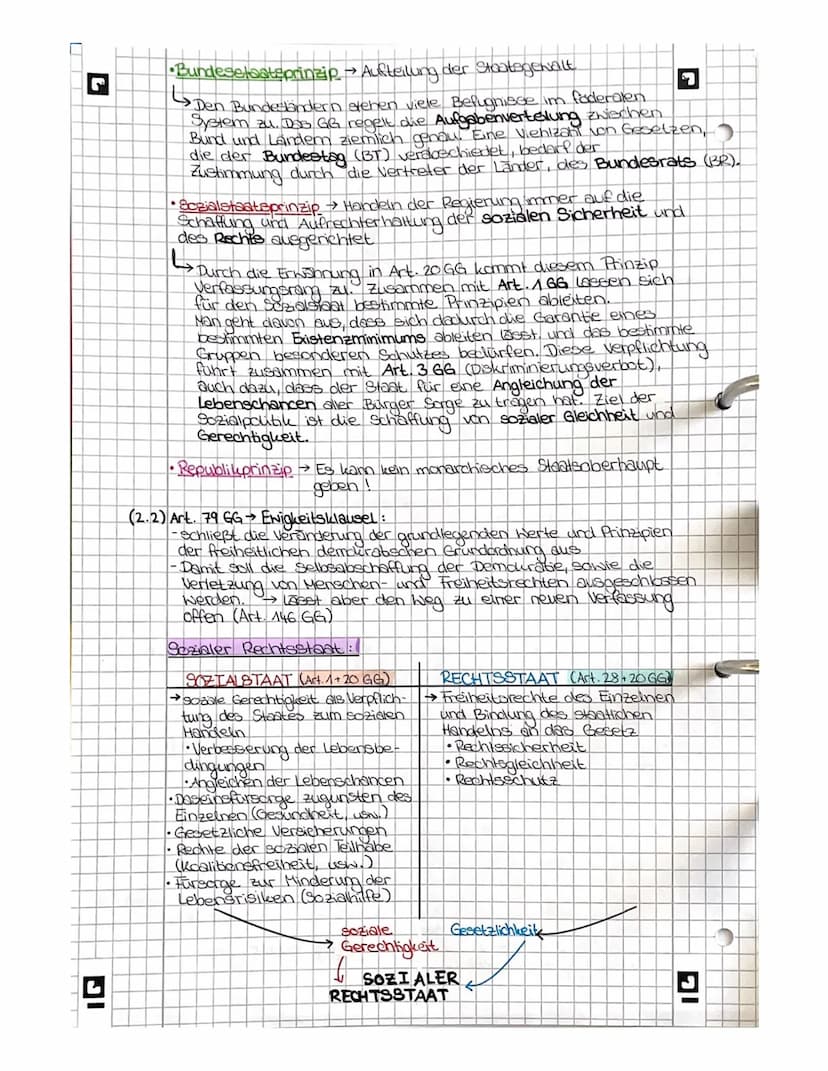 • Bundesstaatsprinzip → Aufteilung der Staatsgewalt
↳ Den Bundesländern stehen viele Befugnisse im föderalen
System zu. Das GG regelt die Aufgabenverteilung zwischen
Bund und Ländern ziemlich genau. Eine Viehlzahl von Gesetzen,
die der Bundestag (BT) verabschiedet, bedarf der
Zustimmung durch die Vertreter der Länder, des Bundesrats (BR).
• Sozialstaatsprinzip → Handeln der Regierung immer auf die
Schaffung und Aufrechterhaltung der sozialen Sicherheit und
des Rechts ausgerichtet
↳ Durch die Erwähnung in Art. 20 GG kommt diesem Prinzip
Verfassungsrang zu. Zusammen mit Art. 1 GG lassen sich
für den Sozialstaat bestimmte Prinzipien ableiten.
Man geht davon aus, dass sich dadurch die Garantie eines
bestimmten Existenzminimums ableiten lässt, und das bestimmte
Gruppen besonderen Schutzes bedürfen. Diese Verpflichtung
führt zusammen mit Art. 3 GG (Diskriminierungsverbot),
auch dazu, dass der Staat für eine Angleichung der
Lebenschancen aller Bürger Sorge zu tragen hat. Ziel der
Sozialpolitik ist die Schaffung von sozialer Gleichheit und
Gerechtigkeit.
• Republikprinzip → Es kann kein monarchisches Staatsoberhaupt
geben!
(2.2) Art. 79 GG → Ewigkeitsklausel:
- schließt die Veränderung der grundlegenden Werte und Prinzipien
der freiheitlichen demokratischen Grundordnung aus
- Damit soll die Selbsabschaffung der Demokratie, sowie die
Verletzung von Menschen- und Freiheitsrechten ausgeschlossen
werden. → Lässt aber den Weg zu einer neuen Verfassung
offen (Art. 146 GG)
Sozialer Rechtsstaat:
SOZIALSTAAT (Art. 1 + 20 GG)
→ soziale Gerechtigkeit als Verpflich-
tung des Staates zum sozialen
Handeln
• Verbesserung der Lebensbe-
dingungen
• Angleichen der Lebenschancen
• Daseinsfürsorge zugunsten des
Einzelnen (Gesundheit, usw.)
• Gesetzliche Versicherungen
• Rechte der sozialen Teilhabe
(Koalitionsfreiheit, usw.)
• Fürsorge zur Minderung der
Lebensrisiken (Sozialhilfe)
RECHTSSTAAT (Art. 28 + 20 GG)
→ Freiheitsrechte des Einzelnen
und Bindung des staatlichen
Handelns an das Gesetz
• Rechtssicherheit
• Rechtsgleichheit
• Rechtsschutz
soziale
Gerechtigkeit
Gesetzlichkeit
SOZIALER
RECHTSSTAAT